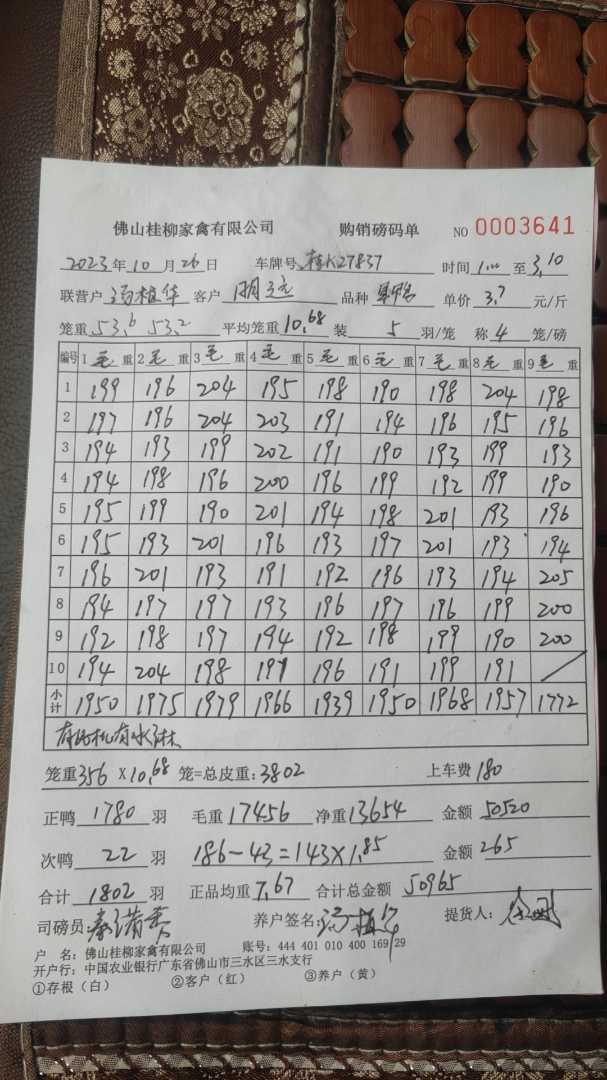 佛山桂柳家禽有限公司 购销磅码单 NO 0003641
2023年10月26日 车牌号 桂K27837 时间 1:00 至 3:10
联营户 植华 客户 明运 品种 单价 3.7 元/斤
笼重 53.6 53.2 平均笼重 10.68 装 5 羽/笼 称 4 笼/磅
编号 1 毛 重 2 毛 重 3 毛 重 4 毛 重 5 毛 重 6 毛 重 7 毛 重 8 毛 重 9 毛 重
1 199 196 204 195 198 190 198 204 198
2 197 196 204 203 191 194 196 195 196
3 194 193 199 202 191 190 193 199 193
4 194 198 196 200 196 199 192 199 190
5 195 199 190 201 194 198 201 193 196
6 195 193 201 196 193 197 201 193 194
7 196 201 193 191 192 196 193 194 205
8 194 197 197 193 196 197 196 199 200
9 192 198 197 194 192 198 199 190 200
10 194 204 198 191 196 191 199 191 /
小计 1950 1975 1979 1966 1939 1950 1968 1957 1772
有水淋
笼重 356 X 10.68 笼=总皮重: 3802 上车费 180
正鸭 1780 羽 毛重 17456 净重 13654 金额 50520
次鸭 22 羽 186-43=143X1.85 金额 265
合计 1802 羽 正品均重 7.67 合计总金额 50965
司磅员: 养户签名: 提货人:
户 名: 佛山桂柳家禽有限公司 账号: 444 401 010 400 169 29
开户行: 中国农业银行广东省佛山市三水区三水支行
①存根（白） ②客户（红） ③养户（黄）